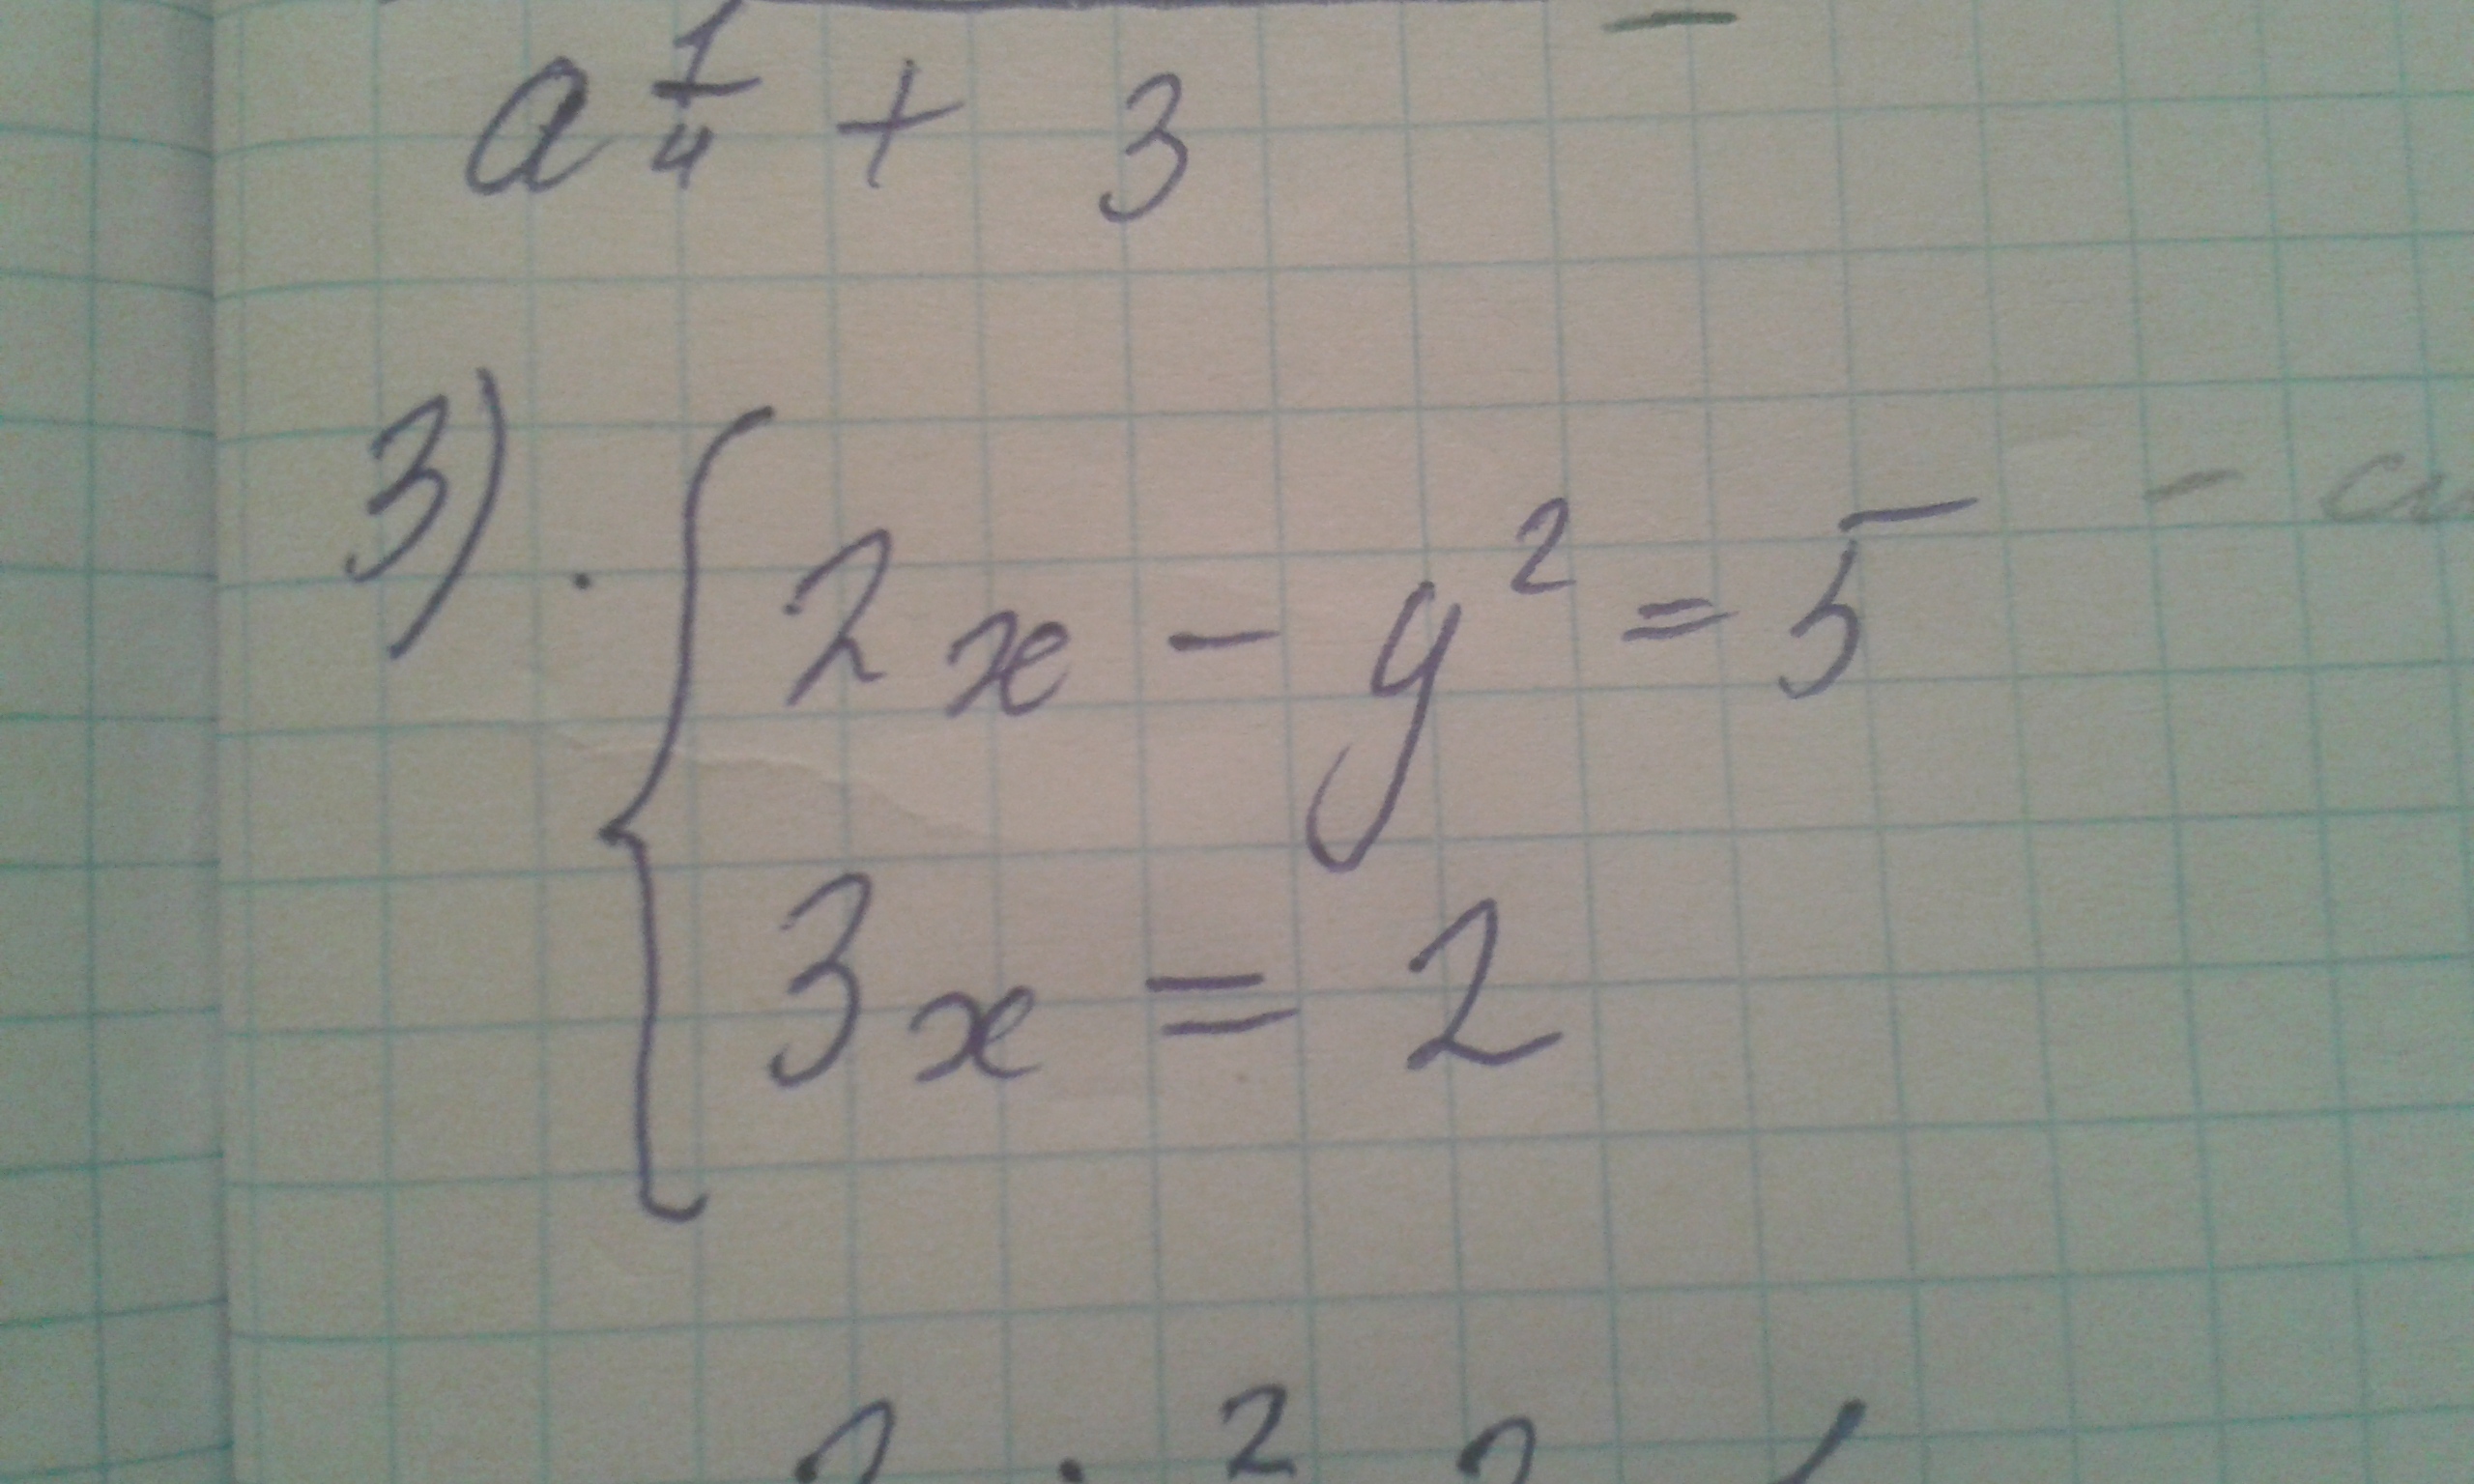 a^{1/4} + 3
3). { 2x - y² = 5
3x = 2